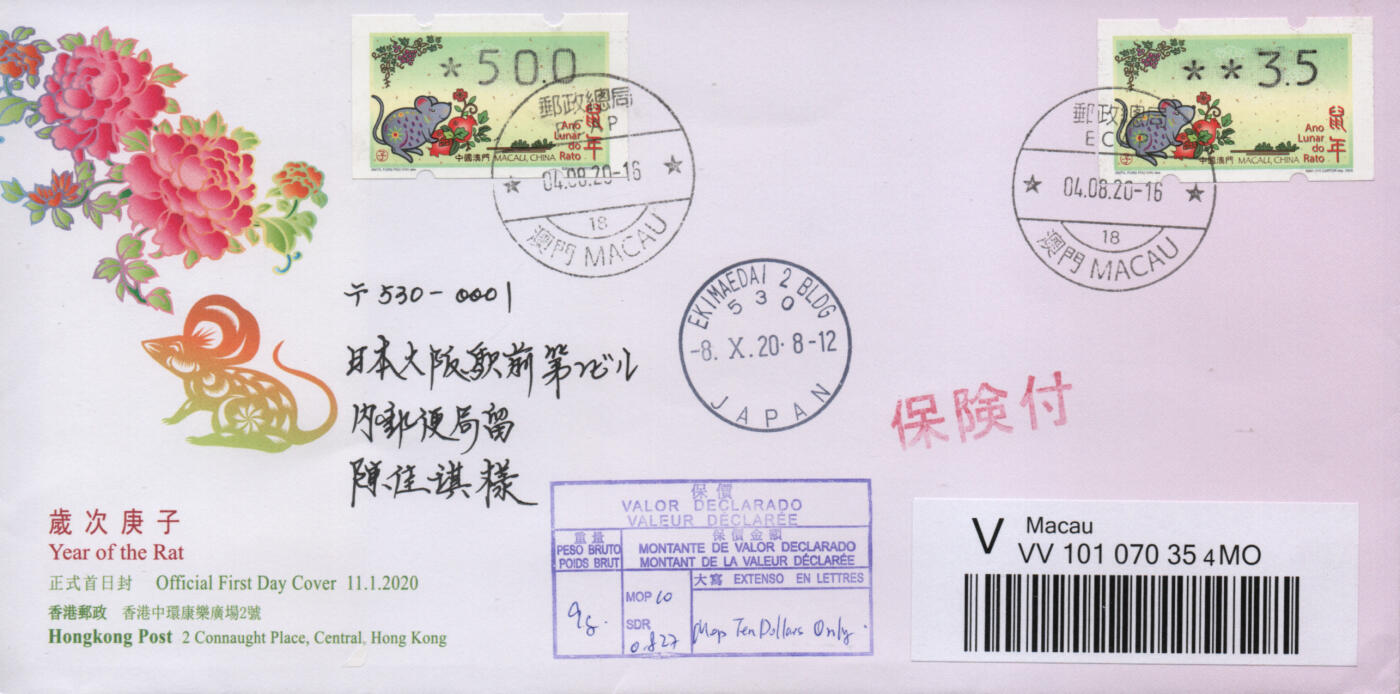 *50.0
鼠年
Ano
Lunar
do
Rato
子
中國澳門 MACAU, CHINA
郵政總局
04.08.20-16
18
澳門 MACAU
**3.5
鼠年
Ano
Lunar
do
Rato
子
中國澳門 MACAU, CHINA
郵政總局
04.08.20-16
18
澳門 MACAU
〒530-0001
日本大阪駅前第2ビル
内郵便局留
陳佳誤様
EKIMAEDAI 2 BLDG
530
-8.X.20.8-12
JAPAN
保険付
歲次庚子
Year of the Rat
正式首日封 Official First Day Cover 11.1.2020
香港郵政 香港中環康樂廣場2號
Hongkong Post 2 Connaught Place, Central, Hong Kong
保價
VALOR DECLARADO
VALEUR DÉCLARÉE
重量
PESO BRUTO
POIDS BRUT
9g.
保價金額
MONTANTE DE VALOR DECLARADO
MONTANT DE LA VALEUR DÉCLARÉE
MOP 10
SDR
0.827
大寫 EXTENSO EN LETTRES
Mop Ten Dollars Only.
V Macau
VV 101 070 35 4MO